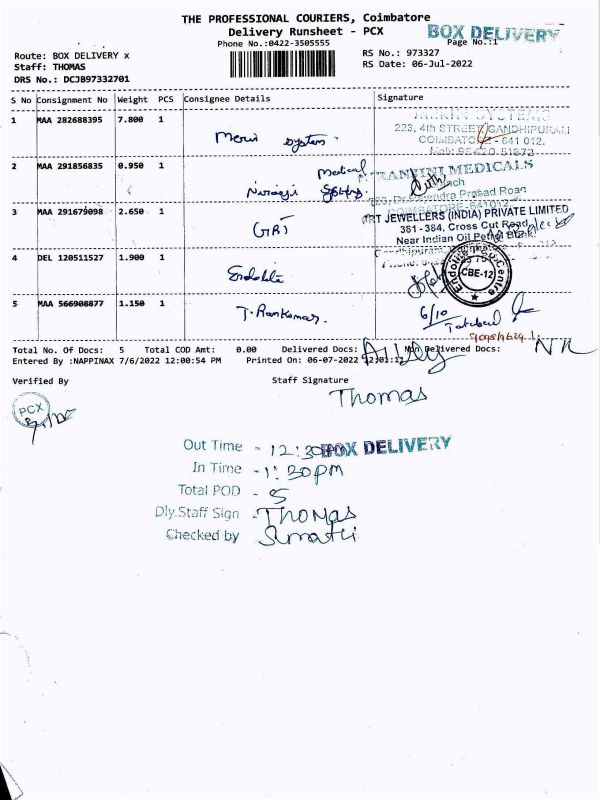 THE PROFESSIONAL COURIERS, Coimbatore
Delivery Runsheet - PCX
BOX DELIVERY
Phone No.:0422-3505555
Page No.:1
Route: BOX DELIVERY x
RS No.: 973327
Staff: THOMAS
RS Date: 06-Jul-2022
DRS No.: DCJB97332701
S No Consignment No Weight PCS Consignee Details Signature
1 MAA 282688395 7.800 1
system
223, 4th STREET, GANDHIPURAM
COIMBATORE - 641 012.
2 MAA 291856835 0.950 1
Medical
MEDICALS
Prasad Road
COIMBATORE-641012
3 MAA 291679098 2.650 1 GRT
GRT JEWELLERS (INDIA) PRIVATE LIMITED
381 - 384, Cross Cut Road,
Near Indian Oil Petrol Bunk
4 DEL 120511527 1.900 1
CBE-12
5 MAA 566908877 1.150 1 T. Ramkumar.
6/10
Tatabad
Total No. Of Docs: 5 Total COD Amt: 0.00 Delivered Docs: Non Delivered Docs:
Entered By :NAPPINAX 7/6/2022 12:00:54 PM Printed On: 06-07-2022 12:01:11
Verified By Staff Signature
Thomas
PCX
Out Time - 12:30pm BOX DELIVERY
In Time - 1:30pm
Total POD - 5
Dly.Staff Sign - Thomas
Checked by